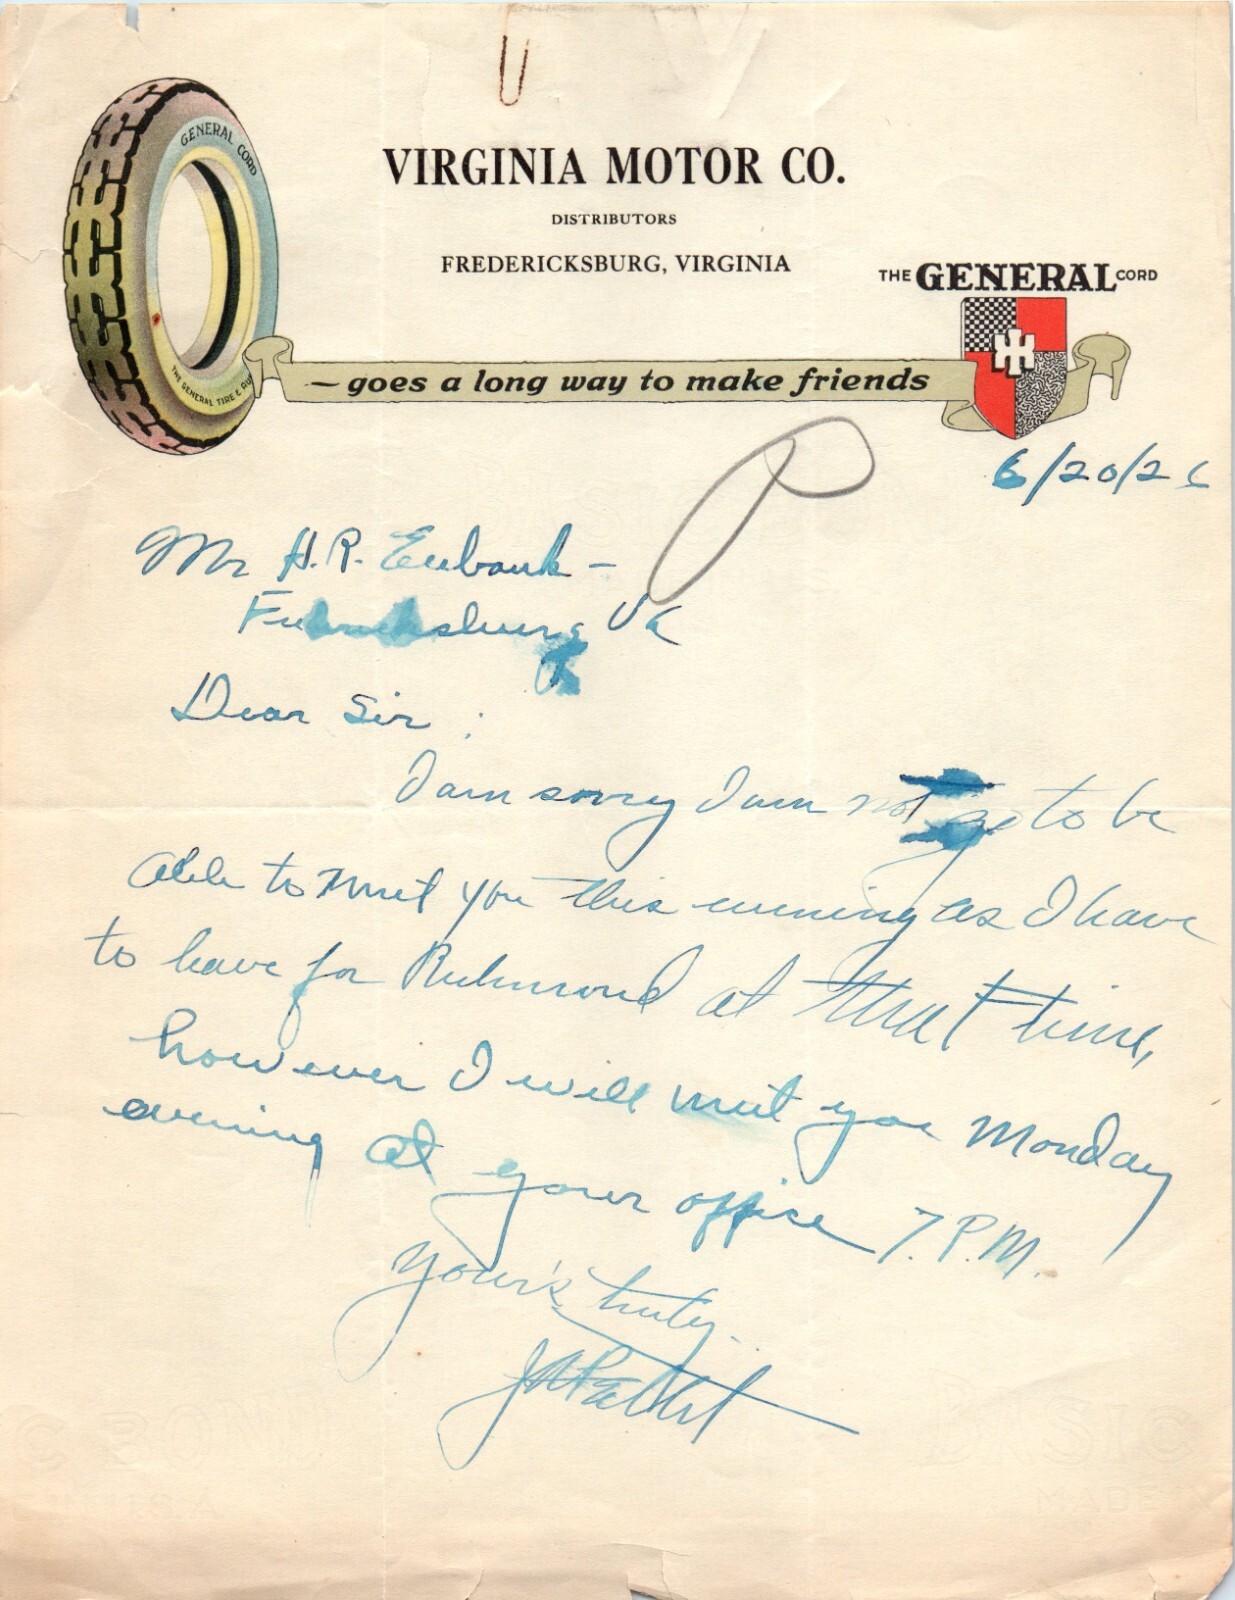 GENERAL CORD
THE GENERAL TIRE & RU
VIRGINIA MOTOR CO.
DISTRIBUTORS
FREDERICKSBURG, VIRGINIA
THE GENERAL CORD
— goes a long way to make friends
6/20/26
Mr H.R. Eubank –
Fredericksburg Va
Dear Sir :
I am sorry I am not go to be
able to meet you this evening as I have
to leave for Richmond at that time,
however I will meet you Monday
evening at your office 7. P.M.
Your's truly.
BASIC
BOND
MADE IN
U.S.A